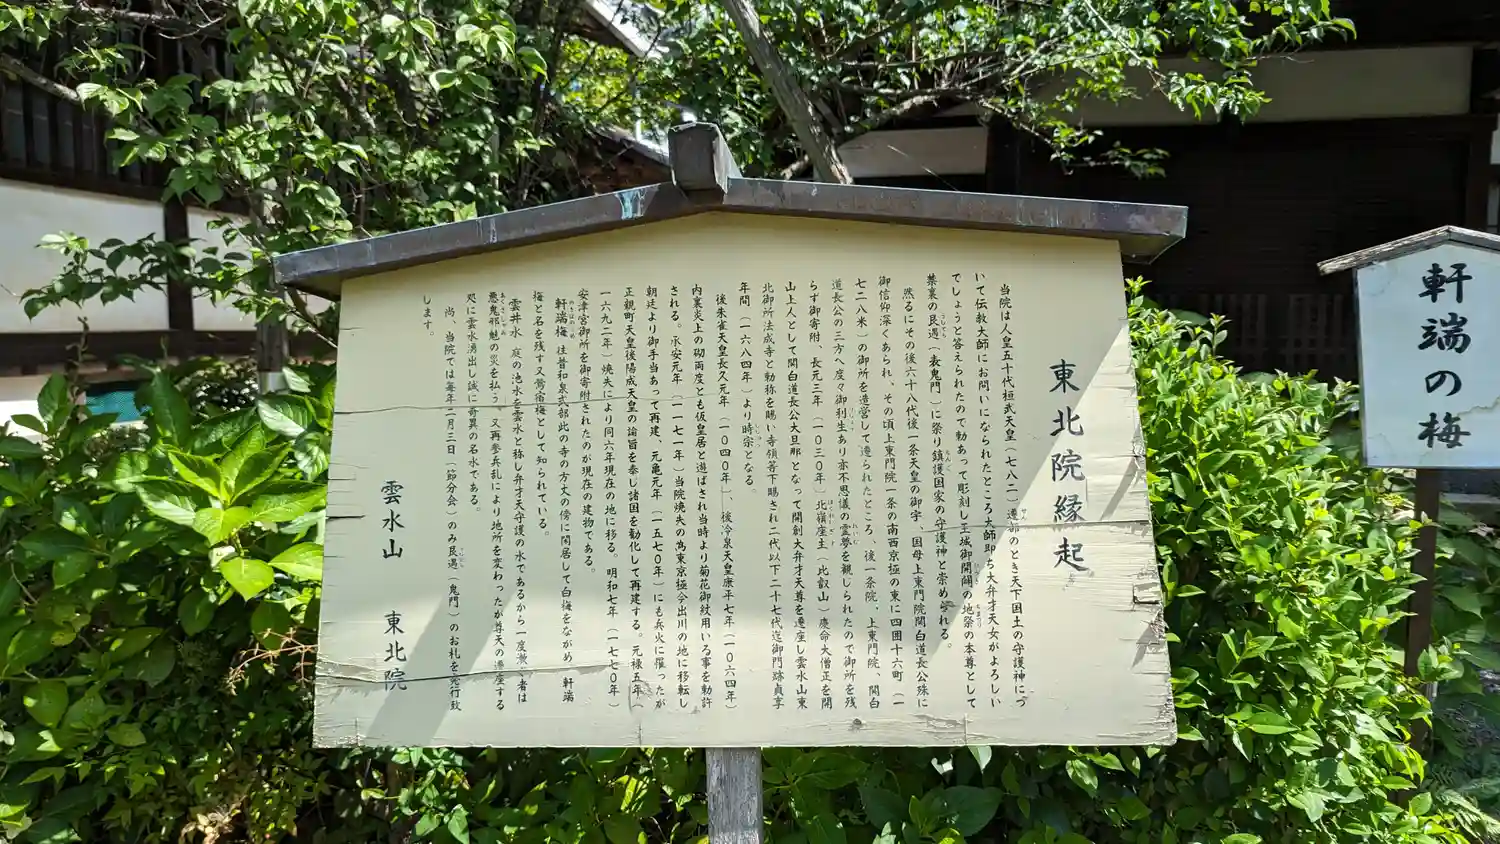 東北院縁起
当院は人皇五十代桓武天皇(七八二)遷都のとき天下国土の守護神につ
いて伝教大師にお問いになられたところ大師即ち大弁才天女がよろしい
でしょうと答えられたので勅あって彫刻し王城御開闢の地祭の本尊として
禁裏の艮遇(表鬼門)に祭り鎮護国家の守護神と崇め らる。
然るにその後六十八代後一条天皇の御宇、国母上東門院関白道長公殊に
御信仰深くあられ、その頃上東門院一条の南西京極の東に四囲十六町(一
七二八米)の御所を造営して遷られたところ、後一条院、上東門院、関白
道長公の三方へ度々御利生あり亦不思議の霊夢を観じられたので御所を残
らず御寄附、長元三年(一〇三〇年)北嶺座主(比叡山)慶命大僧正を開
山上人として関白道長公大旦那となって開創大弁才天尊を遷座し雲水山東
北御所法成寺と勅称を賜い寺領等下賜され二代以下二十七代迄御門跡貞享
年間(一六八四年)より時宗となる。
後朱雀天皇長久元年(一〇四〇年)、後冷泉天皇康平七年(一〇六四年)
内裏炎上の砌両度とも仮皇居と遊ばされ当時より菊花御紋用いる事を勅許
される。承安元年(一一七一年)当院焼失の為東京極今出川の地に移転し
朝廷より御手当あって再建、元亀元年(一五七〇年)にも兵火に罹ったが
正親町天皇後陽成天皇の論旨を奉じ諸国を勧化して再建する。元禄五年(
一六九二年)焼失により同六年現在の地に移る。明和七年(一七七〇年)
安津宮御所を御寄附されたのが現在の建物である。
軒端梅 往昔和泉式部此の寺の方丈の傍に閑居して白梅をながめ 軒端
梅と名を残す又鶯宿梅として知られている。
雲井水 庭の池水を雲水と称し弁才天守護の水であるから一度漱ぐ者は
悪鬼邪魅の災を払う。又再参兵乱により地所を変わったが尊天の遷座する
処に雲水湧出し誠に奇異の名水である。
尚、当院では毎年二月三日(節分会)のみ艮遇(鬼門)のお札を発行致
します。
雲水山 東北院
軒端の梅